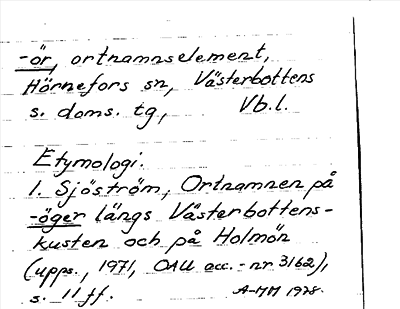 -ör, ortnamnselement,
Hörnefors sn, Västerbottens
s. doms. tg, Vb.l.
Etymologi.
I. Sjöström, Ortnamnen på
-öger längs Västerbottens-
kusten och på Holmön
(upps., 1971, OAU acc.-nr 3162),
s. 11 ff. A-MM 1978.